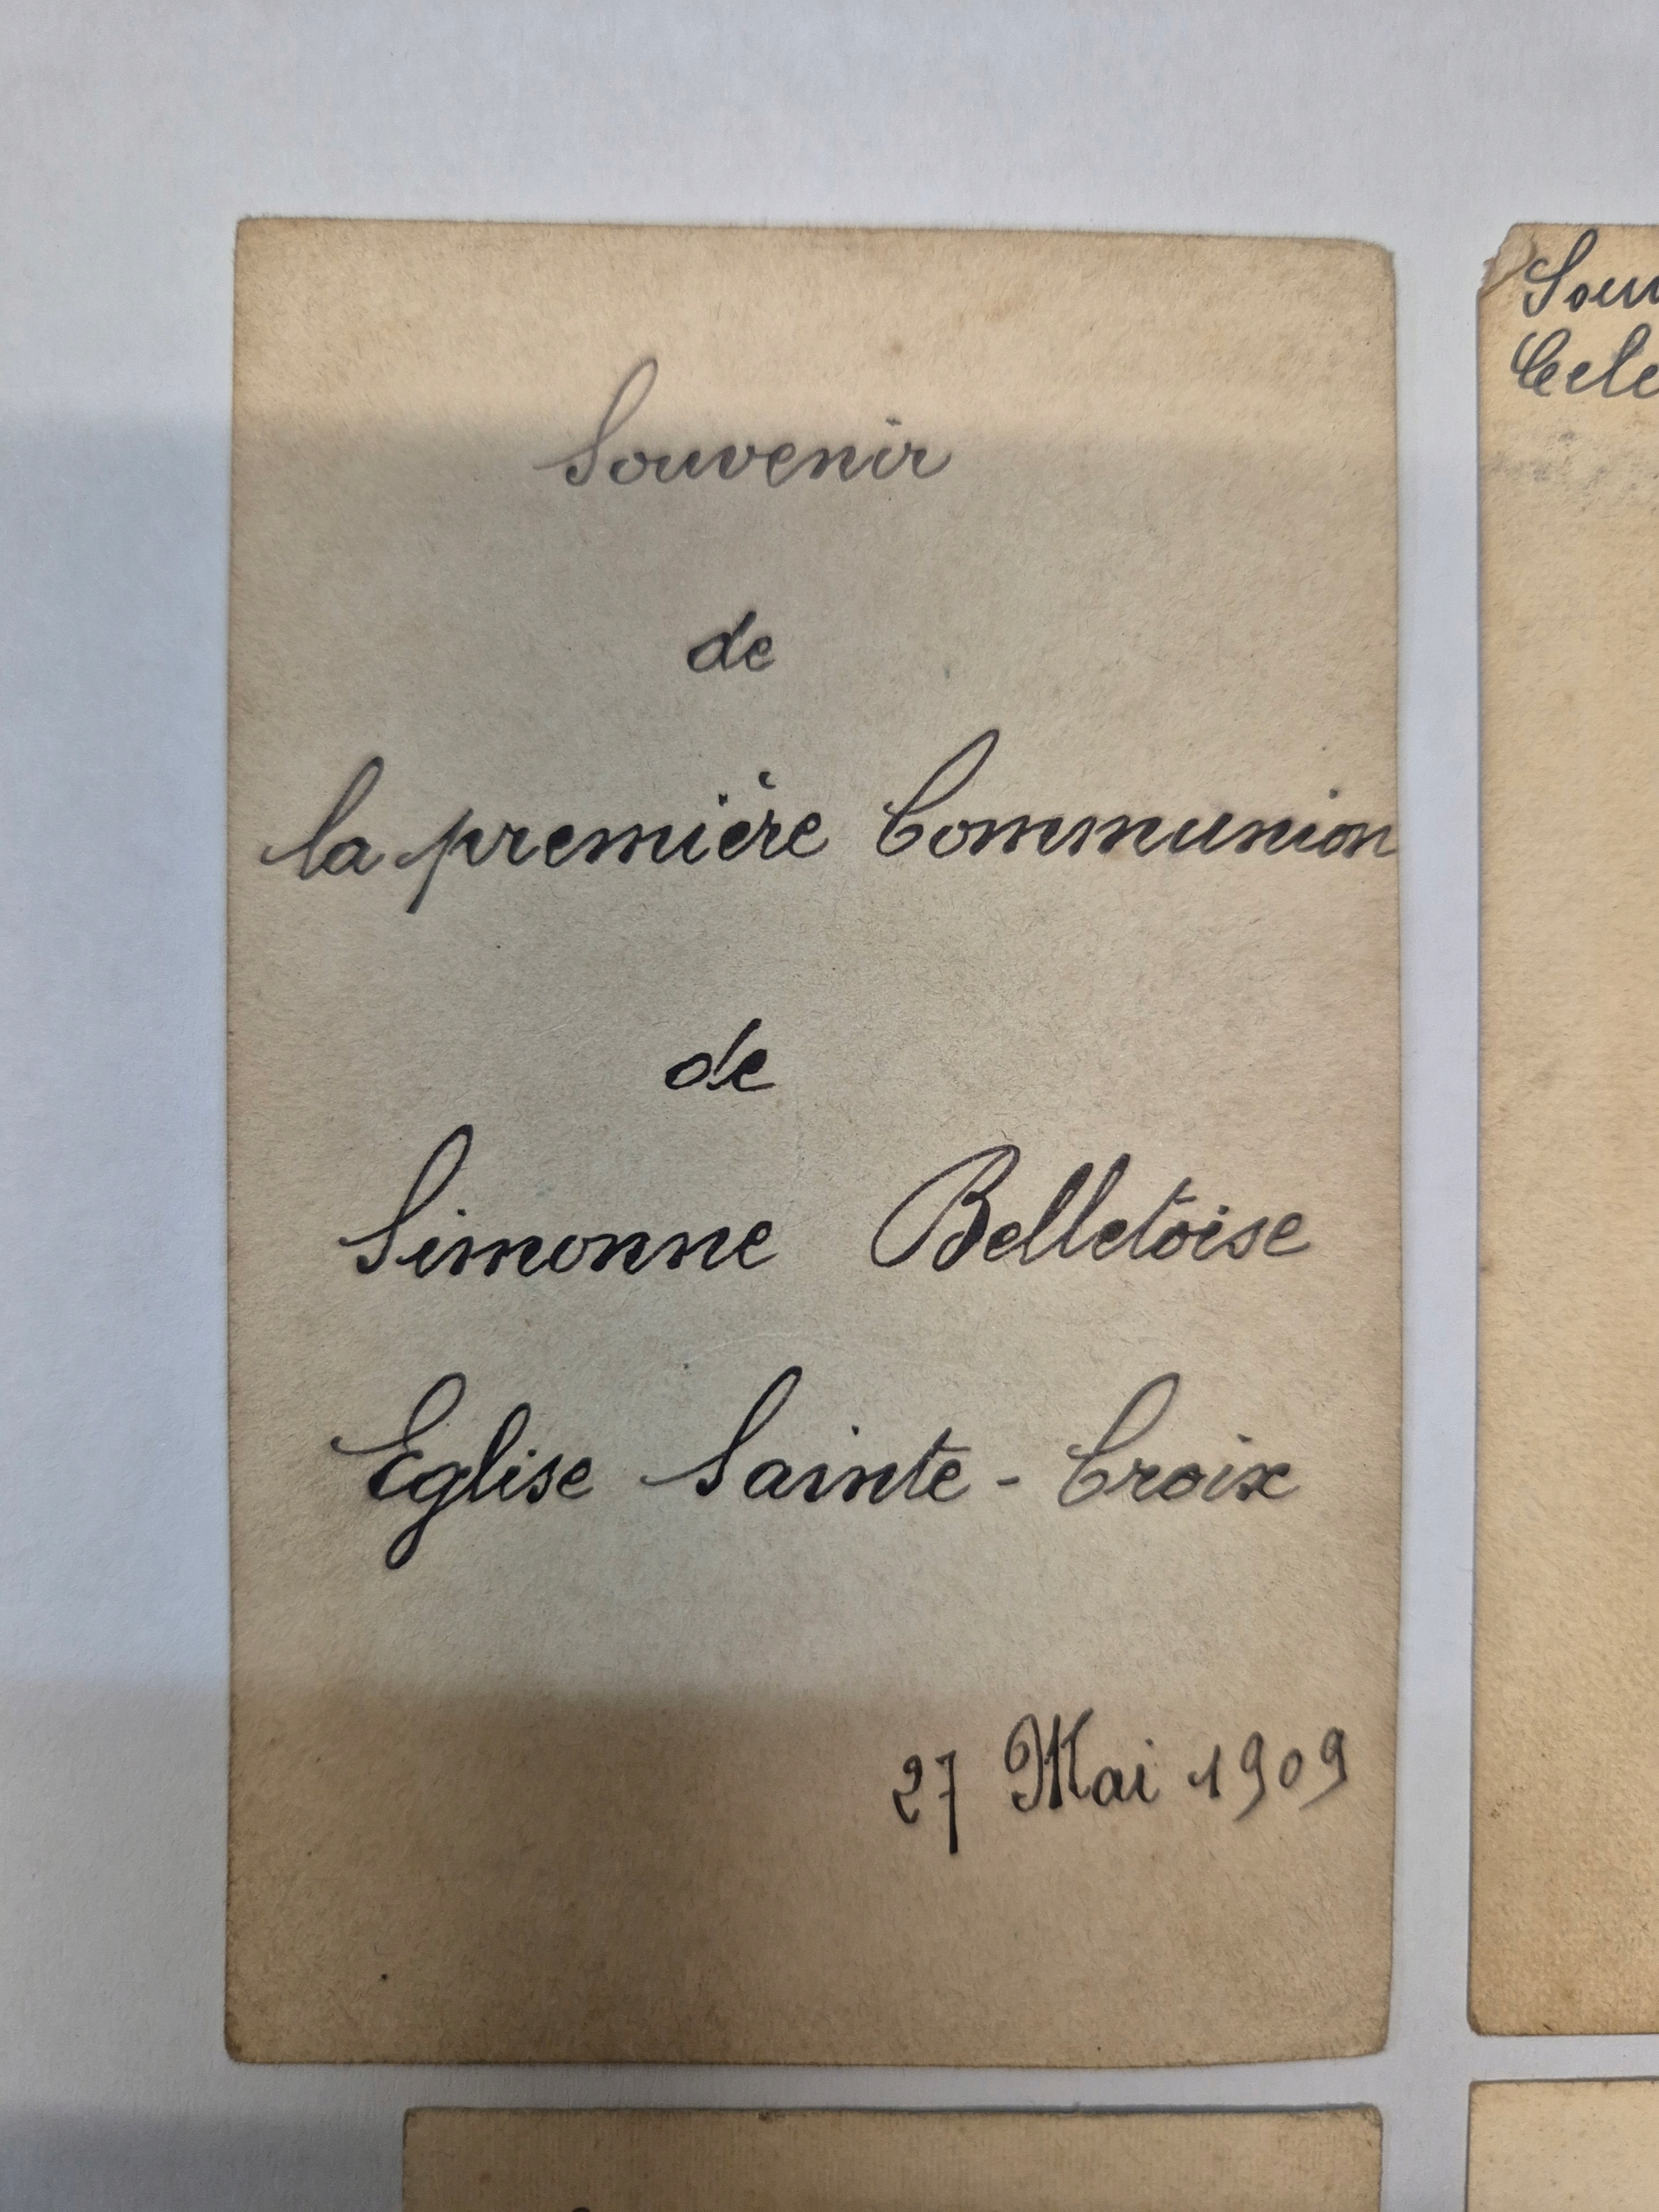 Souvenir
de
la première Communion
de
Simonne Belletoise
Eglise Sainte-Croix
27 Mai 1909